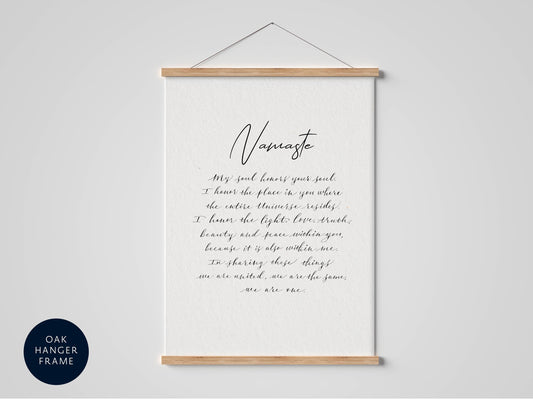 Namaste
My soul honors your soul.
I honor the place in you where
the entire Universe resides.
I honor the light, love, truth,
beauty and peace within you,
because it is also within me.
In sharing these things
we are united, we are the same,
we are one.
OAK
HANGER
FRAME